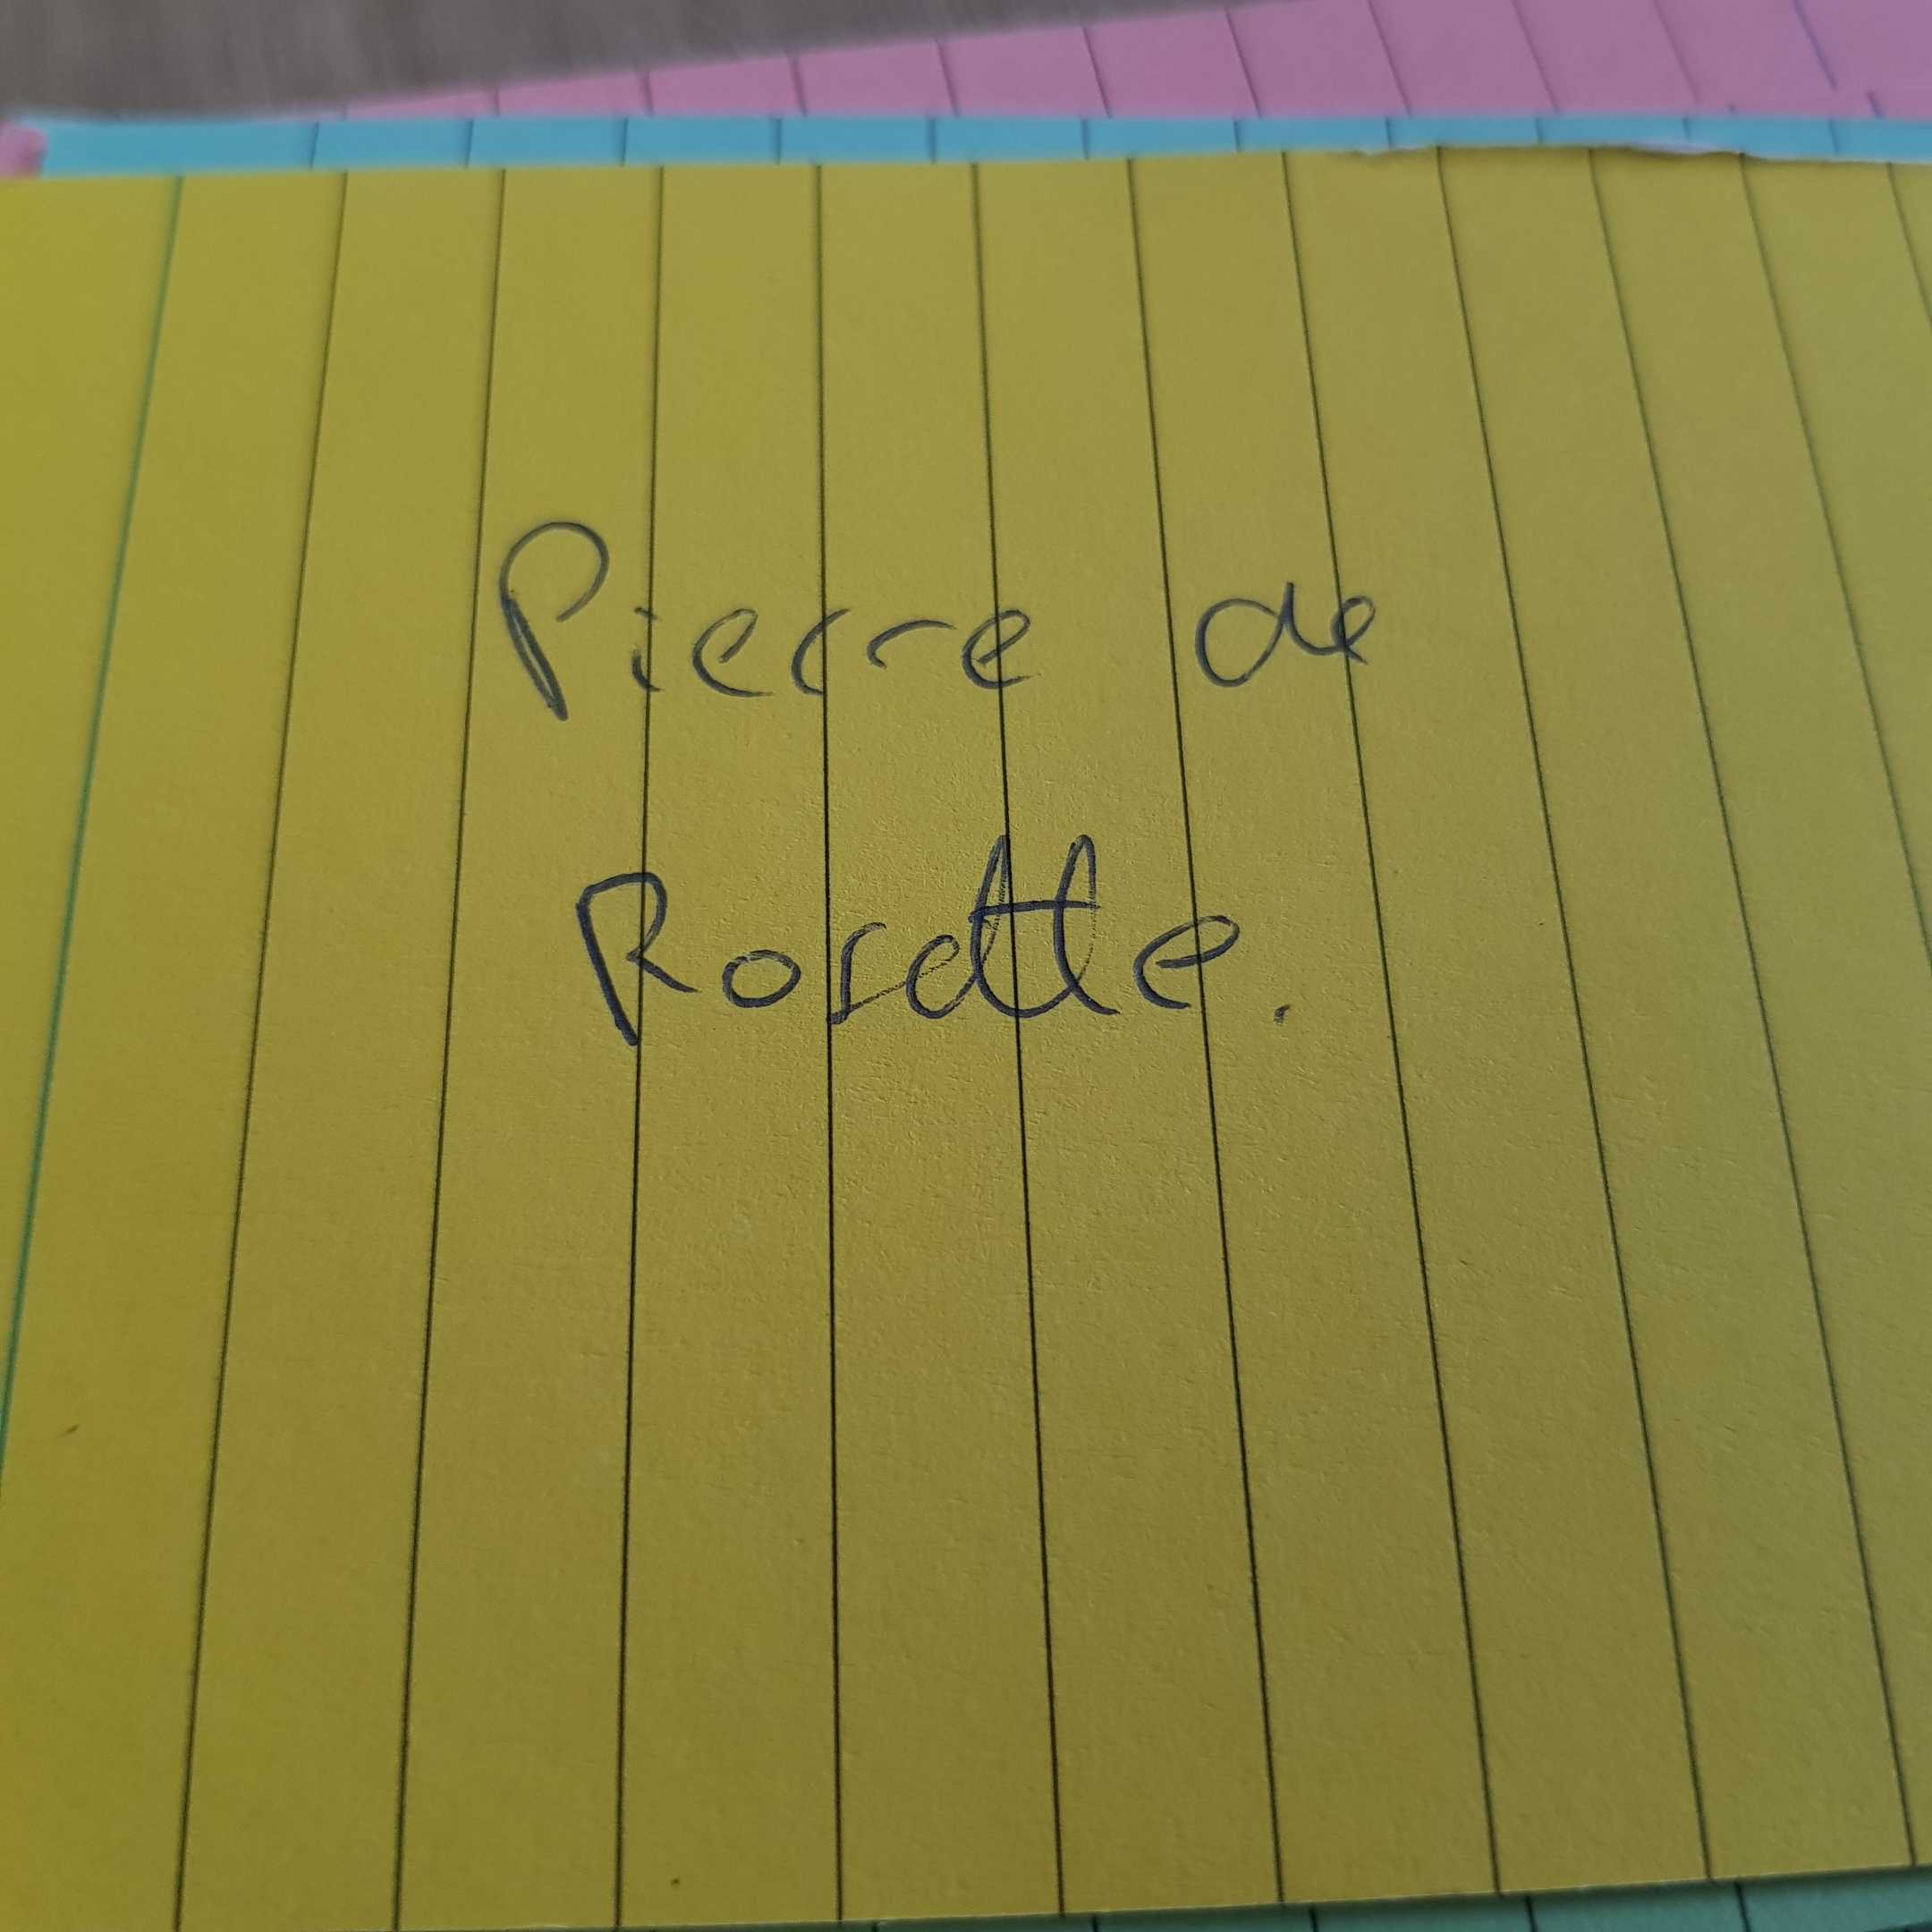 Pierre de
Rosette.